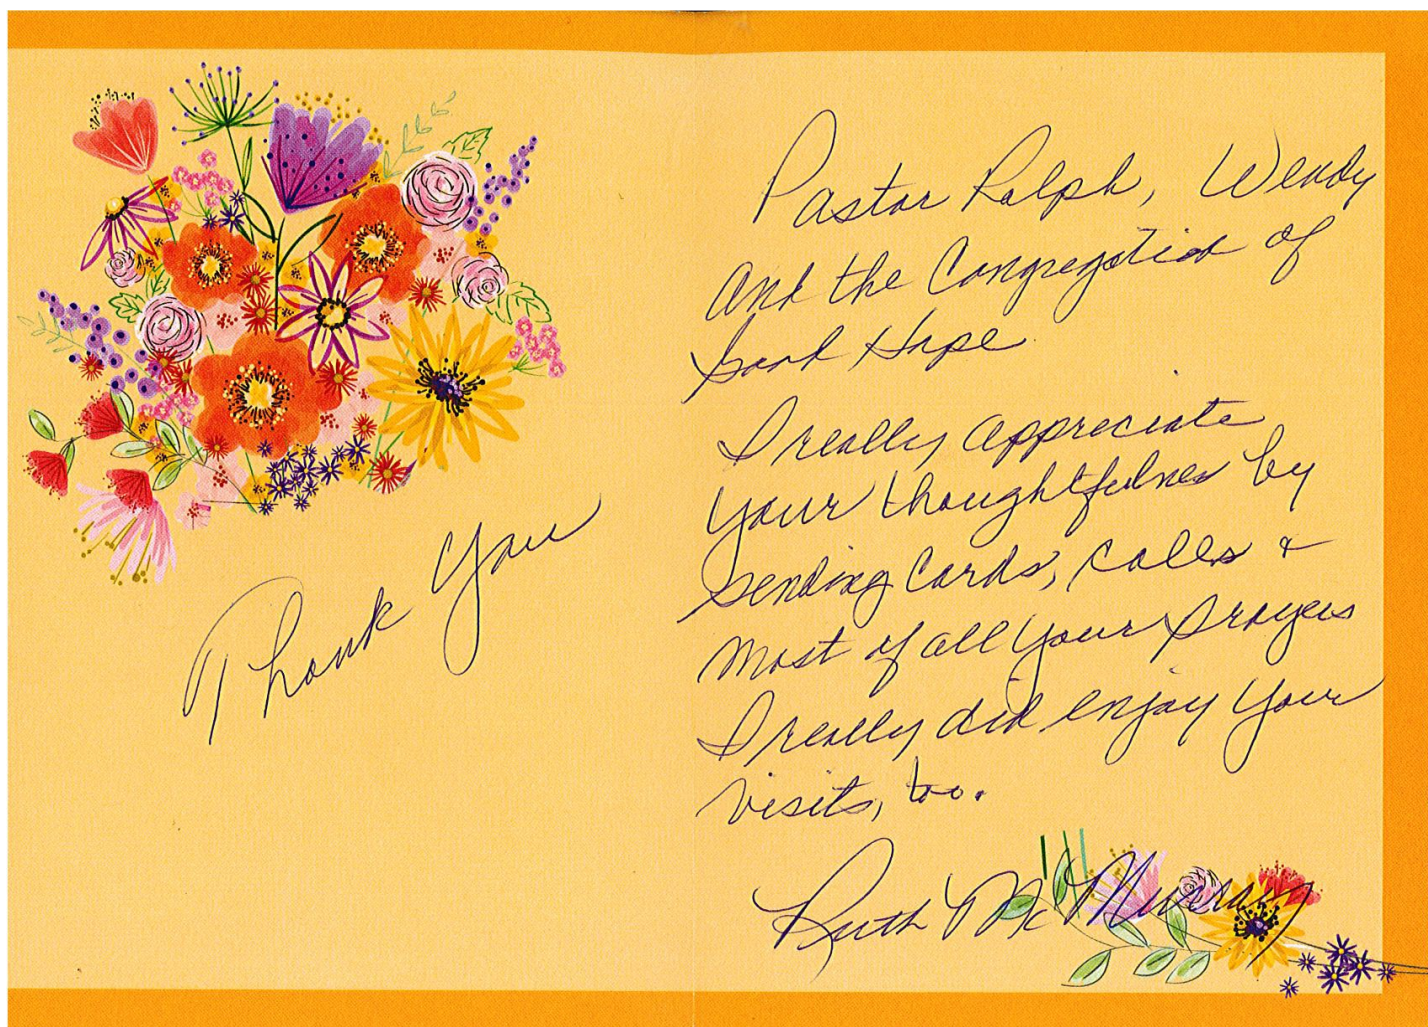 Thank You
Pastor Ralph, Wendy
and the Congregation of
Good Hope
I really appreciate
your thoughtfulness by
sending cards, calls &
most of all your prayers
I really did enjoy your
visits, too.
Ruth Mc